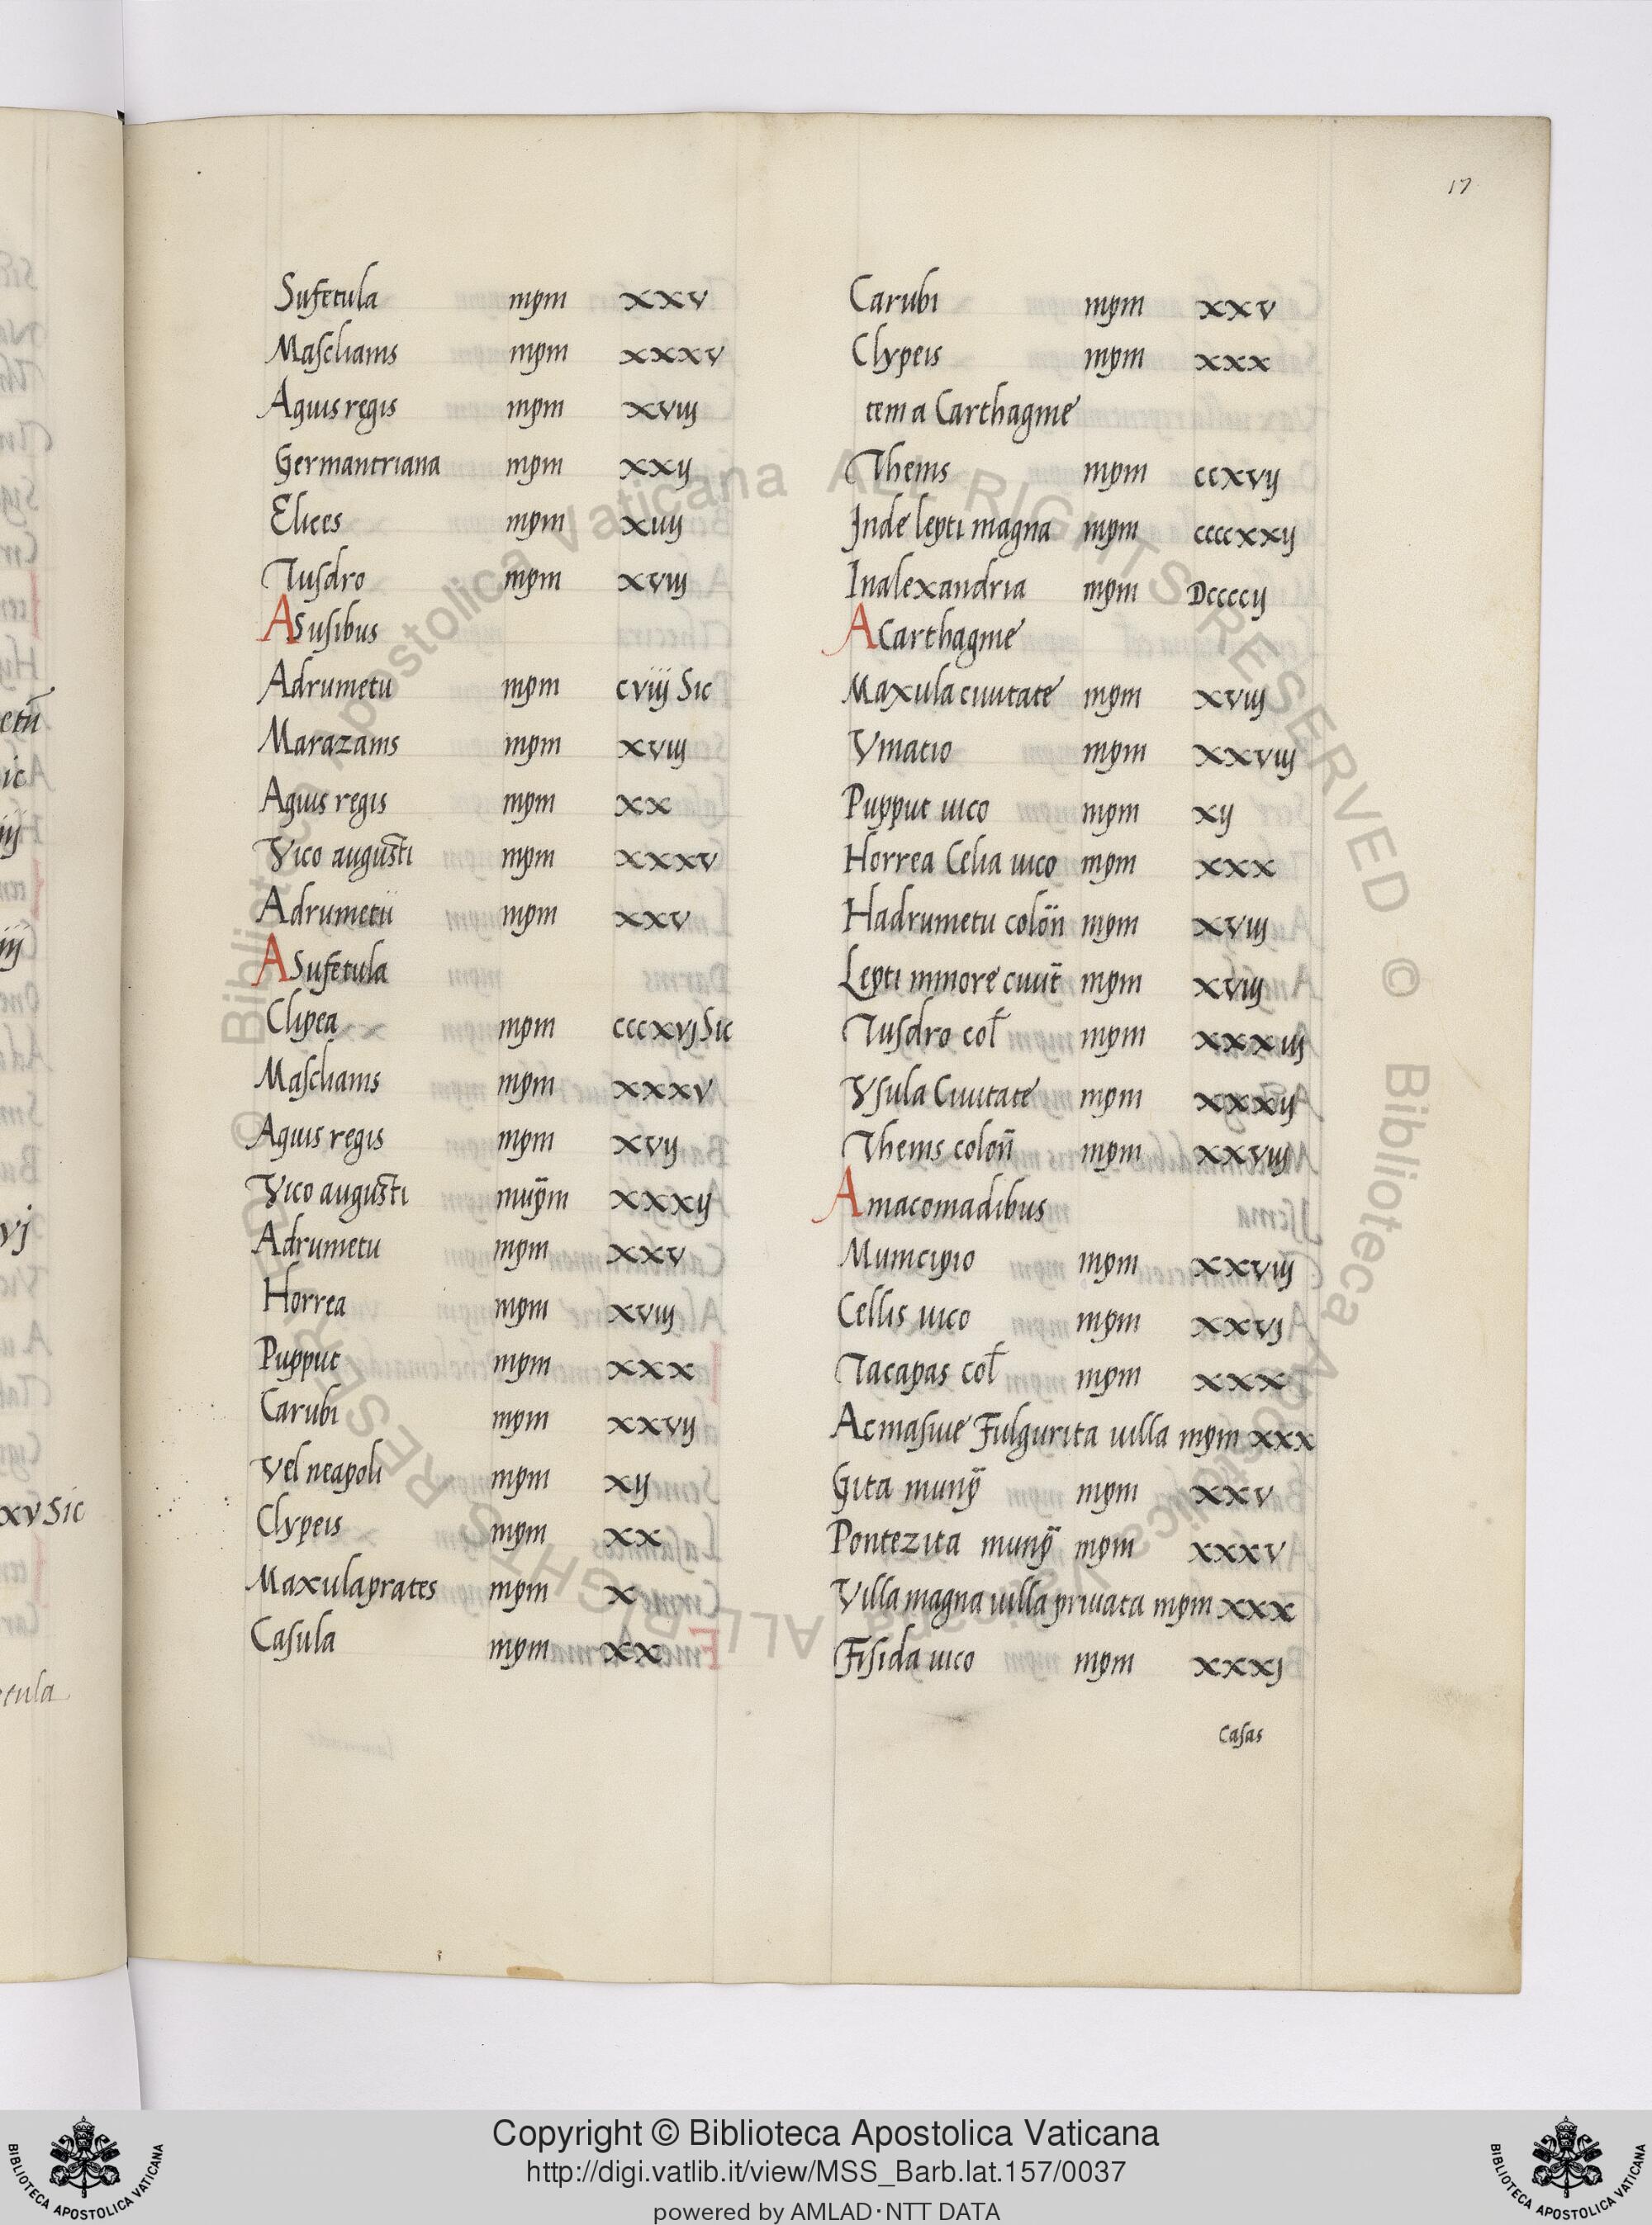 17
Sufetula mpm xxv
Masclianis mpm xxxv
Aquis regis mpm xviij
Germanicriana mpm xxij
Elices mpm xiiij
Tusdro mpm xviij
A Susibus
Adrumetu mpm cviij Sic
Marazanis mpm xviij
Aquis regis mpm xx
Vico augusti mpm xxxv
Adrumetu mpm xxv
A Sufetula
Clipea mpm cccxvj Sic
Masclianis mpm xxxv
Aquis regis mpm xvij
Vico augusti mpm xxxij
Adrumetu mpm xxv
Horrea mpm xviij
Pupput mpm xxx
Carubi mpm xxvij
Vel neapoli mpm xij
Clypeis mpm xx
Maxulaprates mpm x
Casula mpm xx
Carubi mpm xxv
Clypeis mpm xxx
Item a Carthagine
Thenis mpm ccxvij
Inde lepti magna mpm ccccxxij
Inalexandria mpm Dccccij
A Carthagine
Maxula ciuitate mpm xviij
Vinatio mpm xxviij
Pupput uico mpm xij
Horrea Celia uico mpm xxx
Hadrumetu colon̄ mpm xviij
Lepti minore ciuit̄ mpm xviij
Tusdro col̄ mpm xxxiij
Vsula Ciuitate mpm xxxij
Thenis colon̄ mpm xxviij
A macomadibus
Municipio mpm xxviij
Cellis uico mpm xxvj
Tacapas col̄ mpm xxx
Acmasiue Fulgurita uilla mpm xxx
Gita munij mpm xxv
Pontezita munij mpm xxxv
Villa magna uilla priuata mpm xxx
Fisida uico mpm xxxj
Casas
Copyright © Biblioteca Apostolica Vaticana
http://digi.vatlib.it/view/MSS_Barb.lat.157/0037
powered by AMLAD·NTT DATA